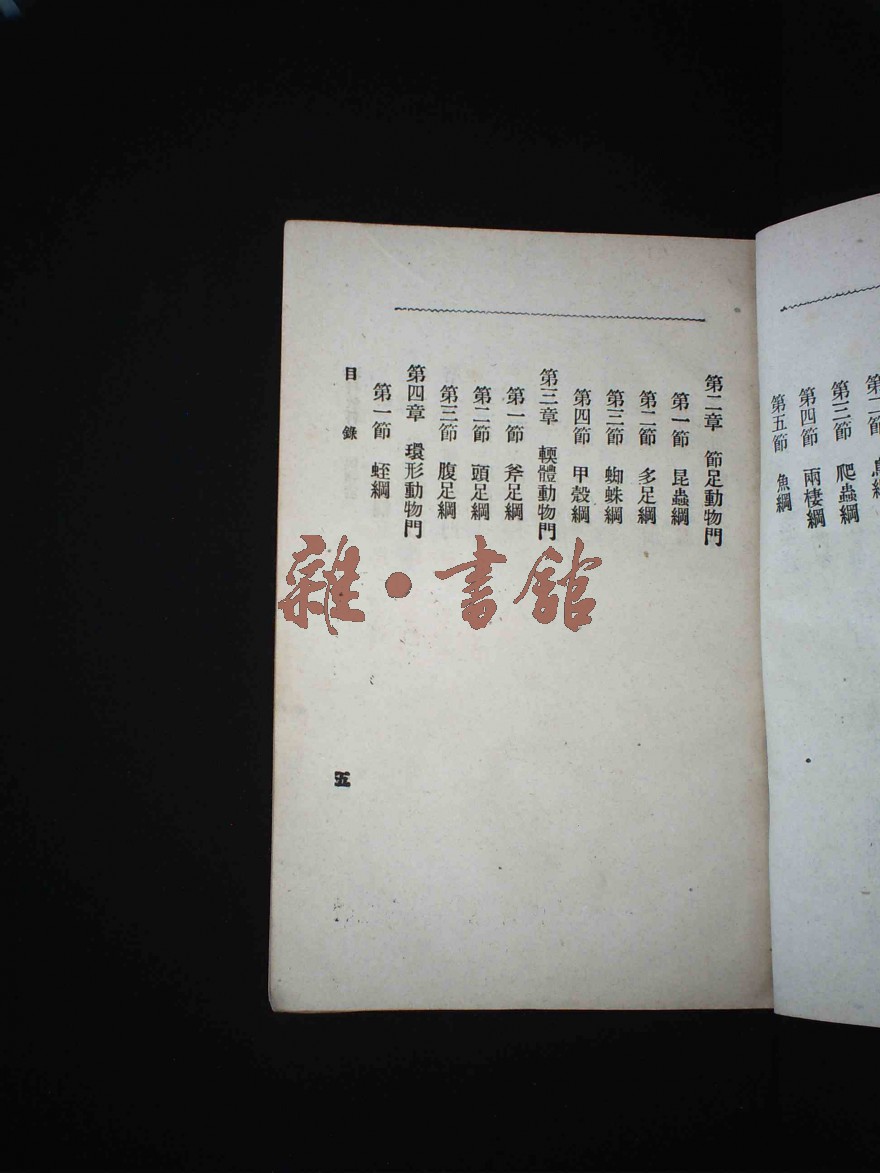 第三節　爬蟲綱
第四節　兩棲綱
第五節　魚綱
第二章　節足動物門
第一節　昆蟲綱
第二節　多足綱
第三節　蜘蛛綱
第四節　甲殼綱
第三章　輭體動物門
第一節　斧足綱
第二節　頭足綱
第三節　腹足綱
第四章　環形動物門
第一節　蛭綱
目錄
五
雜・書館